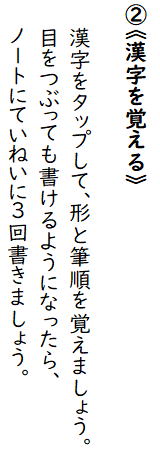 ②《漢字を覚える》
漢字をタップして、形と筆順を覚えましょう。
目をつぶっても書けるようになったら、
ノートにていねいに３回書きましょう。